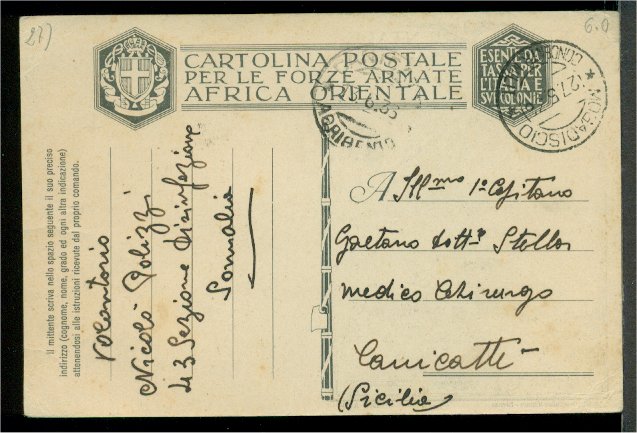 27)
6.0
CARTOLINA POSTALE
PER LE FORZE ARMATE
AFRICA ORIENTALE
ESENTE DA
TASSA PER
L'ITALIA E
SUE COLONIE
MOGADISCIO
AGRIGENTO
A Ill.mo 1° Capitano
Gaetano Dott.r Stella
Medico Chirurgo
Canicattì
(Sicilia)
Il mittente scriva nello spazio seguente il suo preciso
indirizzo (cognome, nome, grado ed ogni altra indicazione)
attenendosi alle istruzioni ricevute dal proprio comando.
Volontario
Nicolò Polizzi
43 Sezione Disinfezione
Somalia